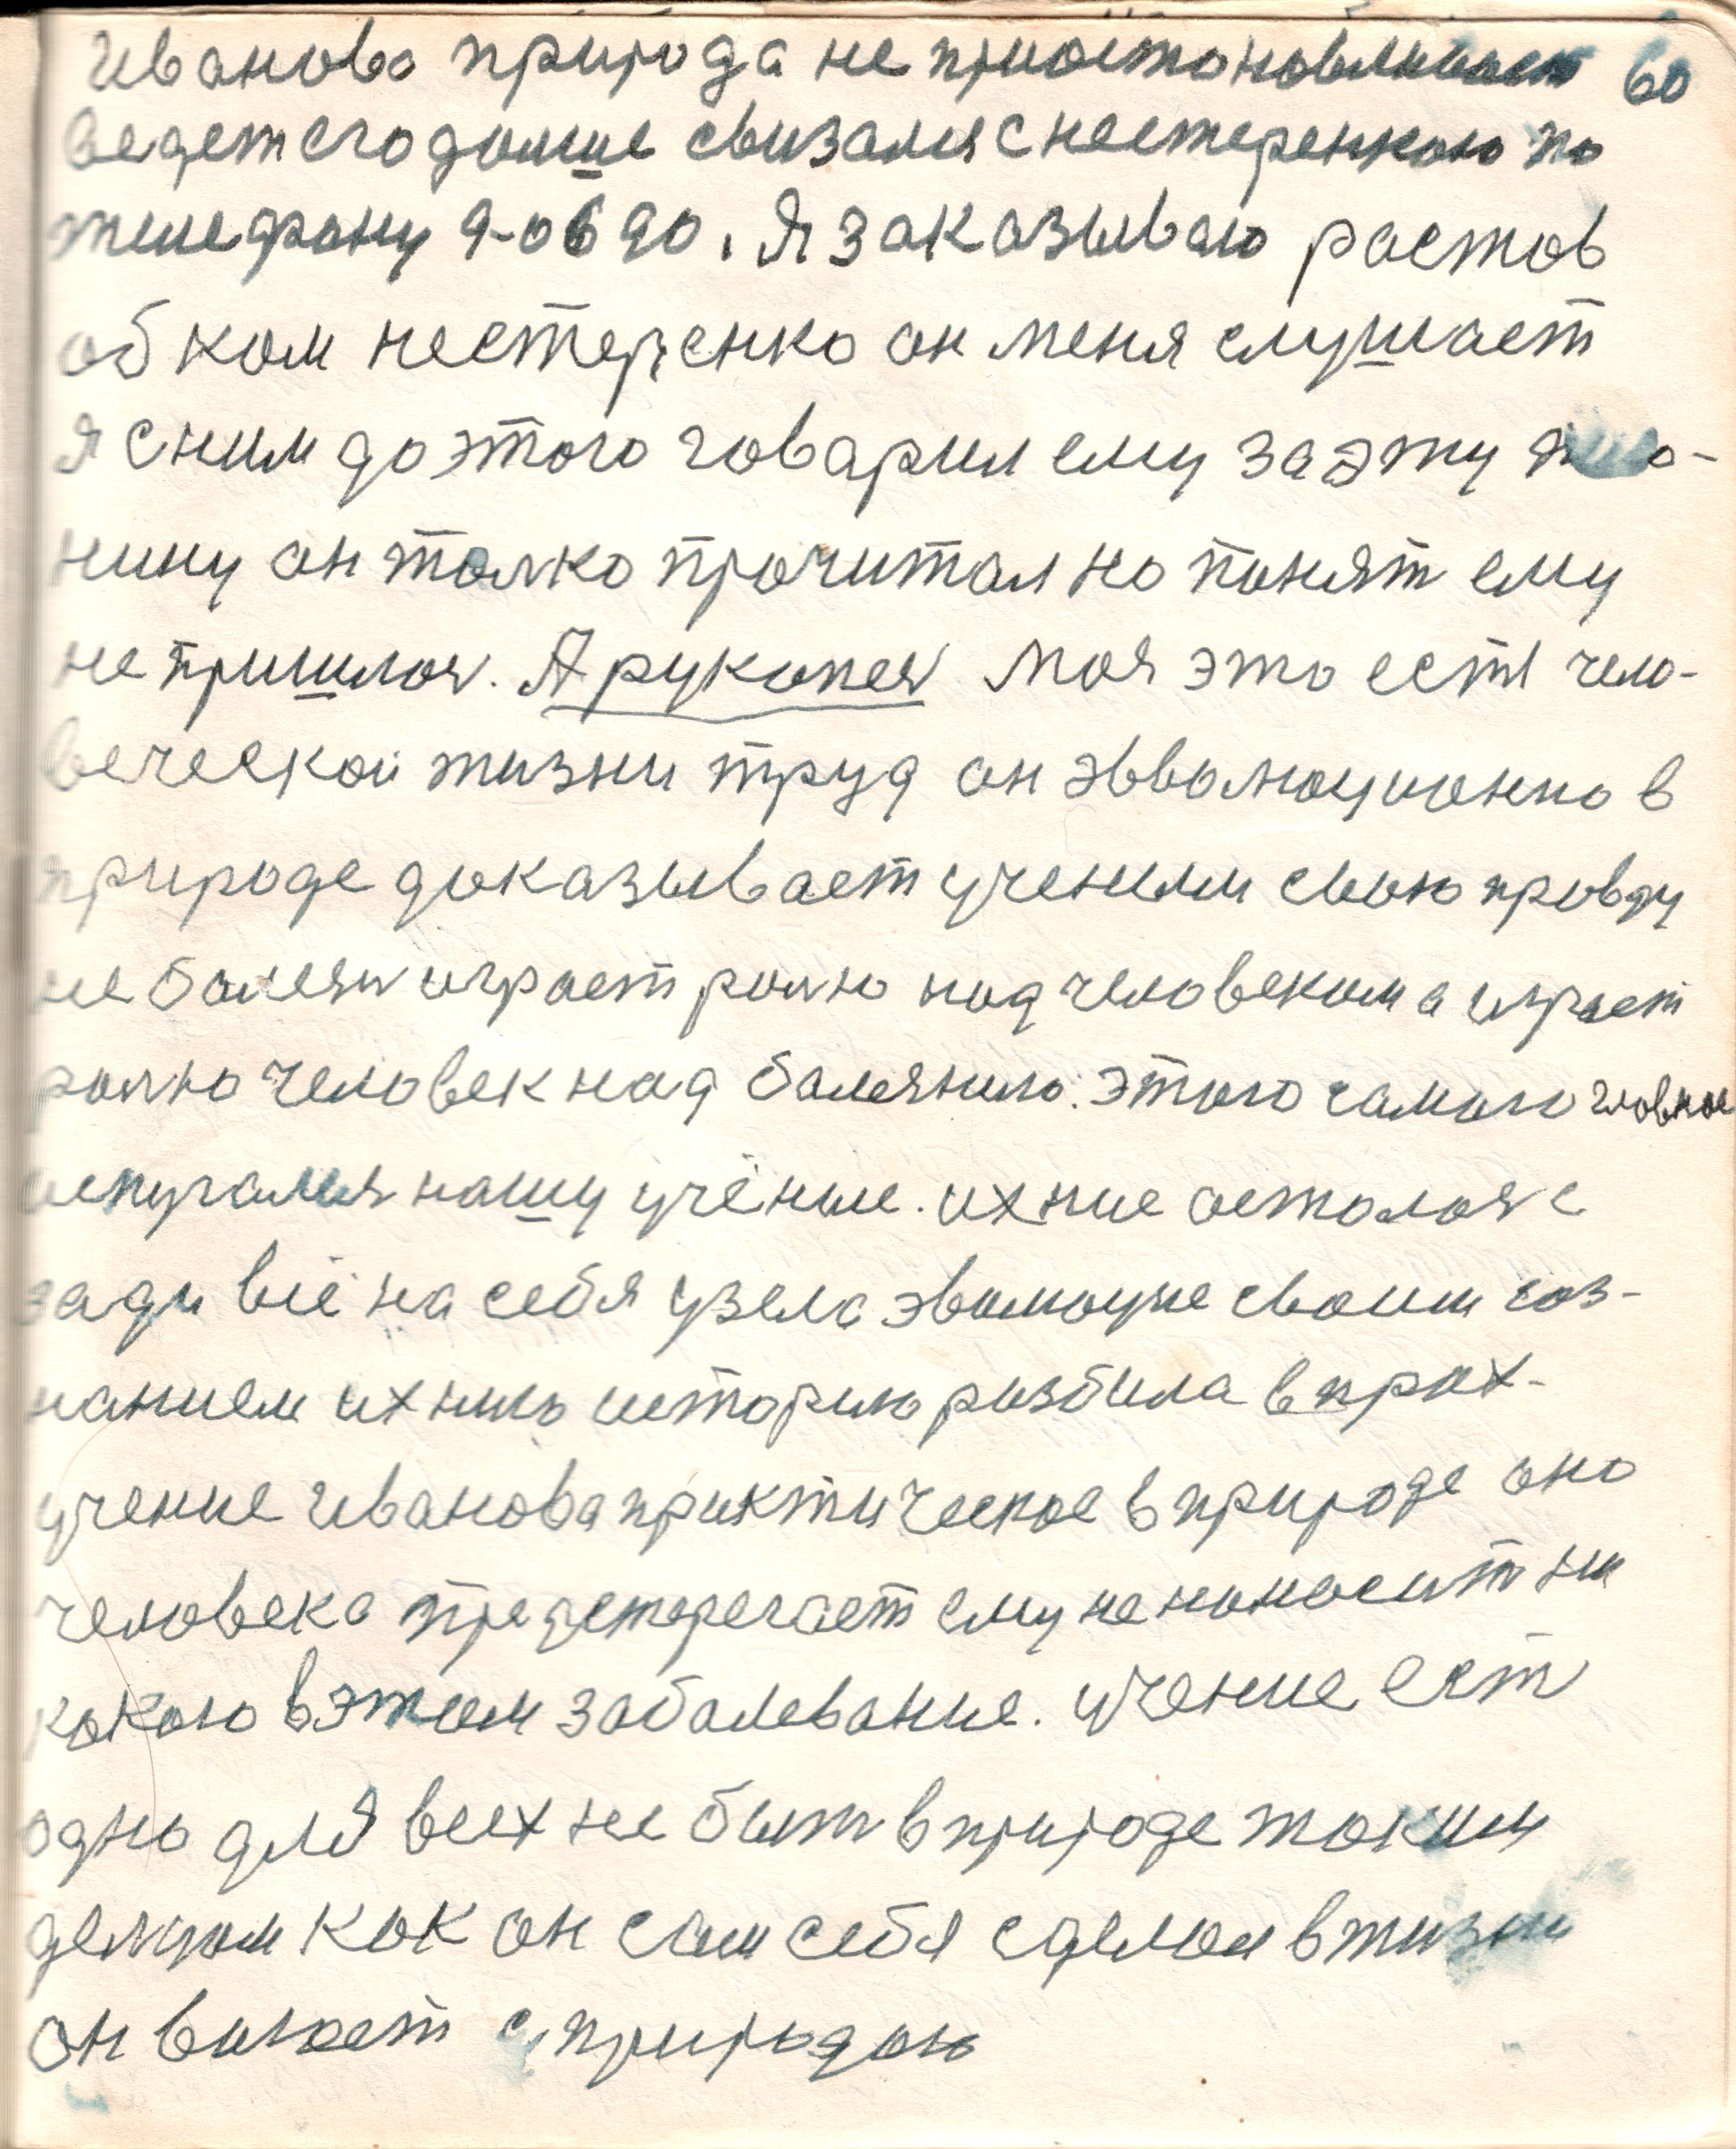 Иванова природа не приостоновливает 60
ведет его дольше свизался с нестеренкою по
телефону 9-0690. Я заказываю ростов
обком нестеренко он меня слушает
Я с ним до этого говарил ему за эту
нину он толко прочитал но понят ему
не пришлося. А рукопея Моя это есть чело-
веческой жизни труд он эвволюционно в
природе доказывает ученым свою правду
не болезн играет ролю над человеком а играет
ролю человек над болезнию. этого самого главное
испугался нашу учёные. ихние осталося с
зади всё на себя узела эволюцие своим соз-
нанием ихнию историю розбила в прах-
учение Иванова приктическое в природе оно
человека предстерегает ему не наносит ни
какого в этом заболевание. учение ест
одно для всех не быт в природе таким
делцом как он сам себя сделал в жизни
он воюет с природою